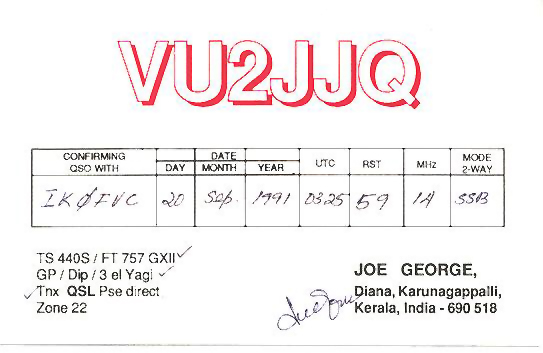 VU2JJQ
CONFIRMING QSO WITH DATE DAY MONTH YEAR UTC RST MHz MODE 2-WAY
IKØFVC 20 Sep. 1991 0325 59 14 SSB
TS 440S / FT 757 GXII ✓
GP / Dip / 3 el Yagi ✓
✓ Tnx QSL Pse direct
Zone 22
JOE GEORGE,
Diana, Karunagappalli,
Kerala, India - 690 518